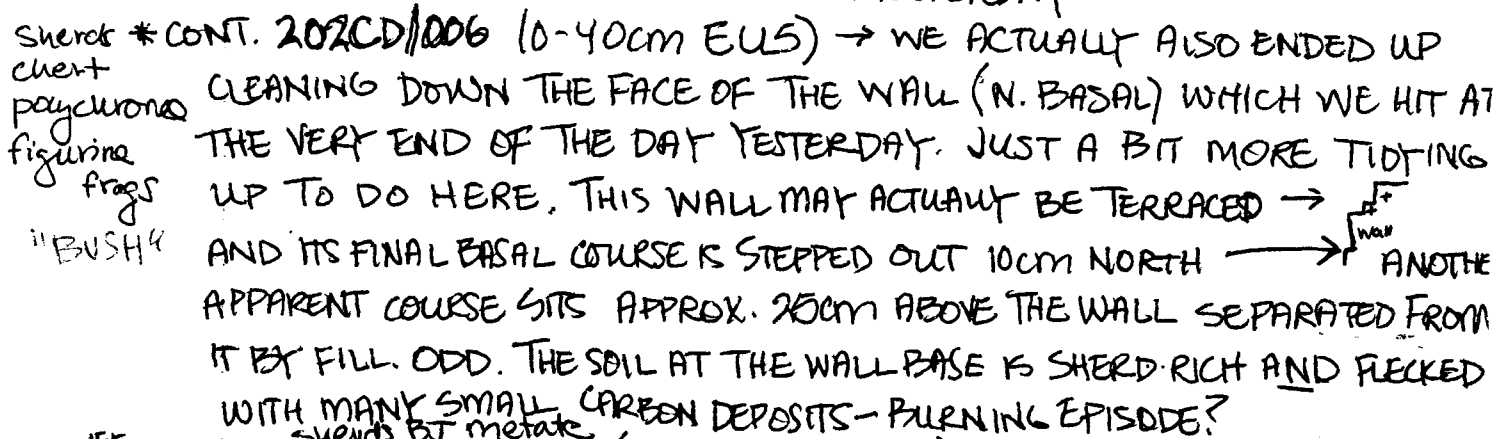 sherds * CONT. 202CD/1006 (0-40cm EU5) → WE ACTUALLY ALSO ENDED UP
chert
polychrome CLEANING DOWN THE FACE OF THE WALL (N. BASAL) WHICH WE HIT AT
figurine THE VERY END OF THE DAY YESTERDAY. JUST A BIT MORE TIDYING
frags UP TO DO HERE. THIS WALL MAY ACTUALLY BE TERRACED →
wall
"BUSH" AND ITS FINAL BASAL COURSE IS STEPPED OUT 10cm NORTH → ANOTHE
APPARENT COURSE SITS APPROX. 25cm ABOVE THE WALL SEPARATED FROM
IT BY FILL. ODD. THE SOIL AT THE WALL BASE IS SHERD-RICH AND FLECKED
WITH MANY SMALL CARBON DEPOSITS - BURNING EPISODE?
sherds BT metate